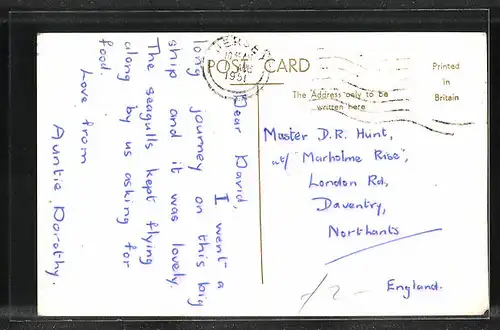 POST CARD
JERSEY
1951
The Address only to be
written here
Printed
in
Britain
Dear David,
I went a
long journey on this big
ship and it was lovely.
The seagulls kept flying
along by us asking for
food.
Love from
Auntie Dorothy.
Master D.R. Hunt,
"Marholme Rise",
London Rd,
Daventry,
Northants
England.
/2-